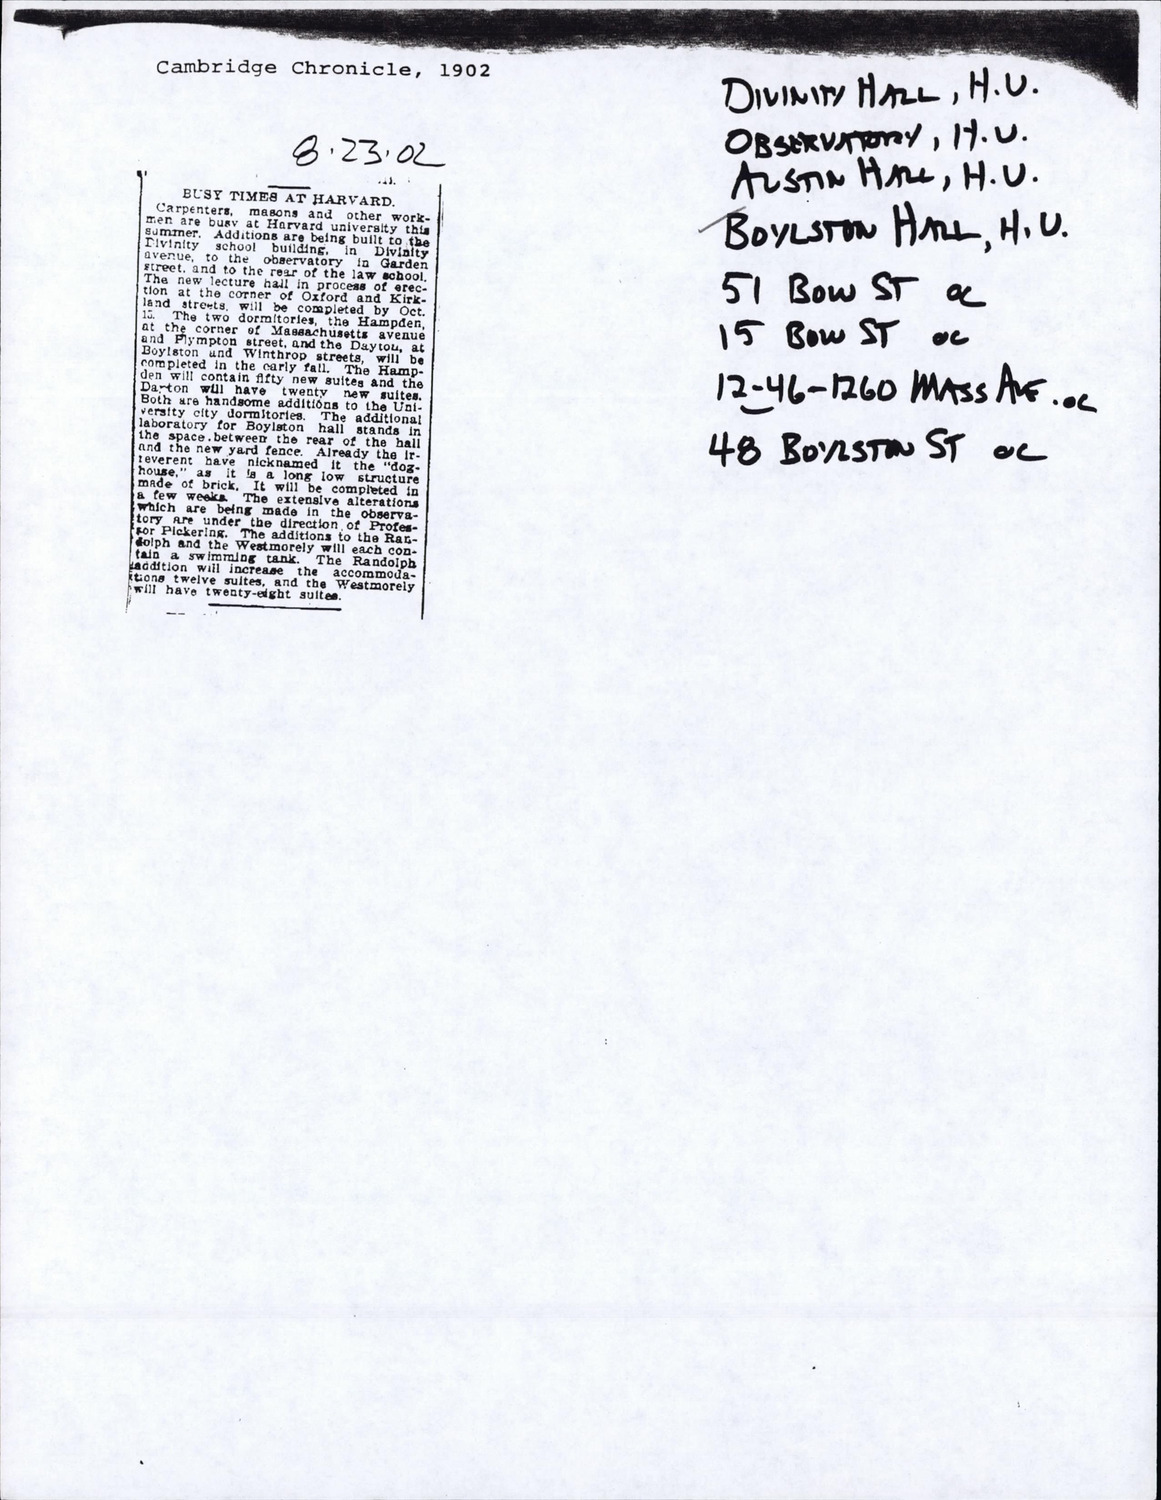 Cambridge Chronicle, 1902
8.23.02
BUSY TIMES AT HARVARD.
Carpenters, masons and other work-
men are busy at Harvard university this
summer. Additions are being built to the
Divinity school building, in Divinity
avenue, to the observatory in Garden
street, and to the rear of the law school.
The new lecture hall in process of erec-
tion at the corner of Oxford and Kirk-
land streets, will be completed by Oct.
15. The two dormitories, the Hampden,
at the corner of Massachusetts avenue
and Plympton street, and the Dayton, at
Boylston and Winthrop streets, will be
completed in the early fall. The Hamp-
den will contain fifty new suites and the
Dayton will have twenty new suites.
Both are handsome additions to the Uni-
versity city dormitories. The additional
laboratory for Boylston hall stands in
the space between the rear of the hall
and the new yard fence. Already the ir-
reverent have nicknamed it the "dog-
house," as it is a long low structure
made of brick. It will be completed in
a few weeks. The extensive alterations
which are being made in the observa-
tory are under the direction of Profes-
sor Pickering. The additions to the Ran-
dolph and the Westmorely will each con-
tain a swimming tank. The Randolph
addition will increase the accommoda-
tions twelve suites, and the Westmorely
will have twenty-eight suites.
DIVINITY HALL, H.U.
OBSERVATORY, H.U.
AUSTIN HALL, H.U.
BOYLSTON HALL, H.U.
51 BOW ST OC
15 BOW ST OC
12-46-1260 MASS AVE. OC
48 BOYLSTON ST OC